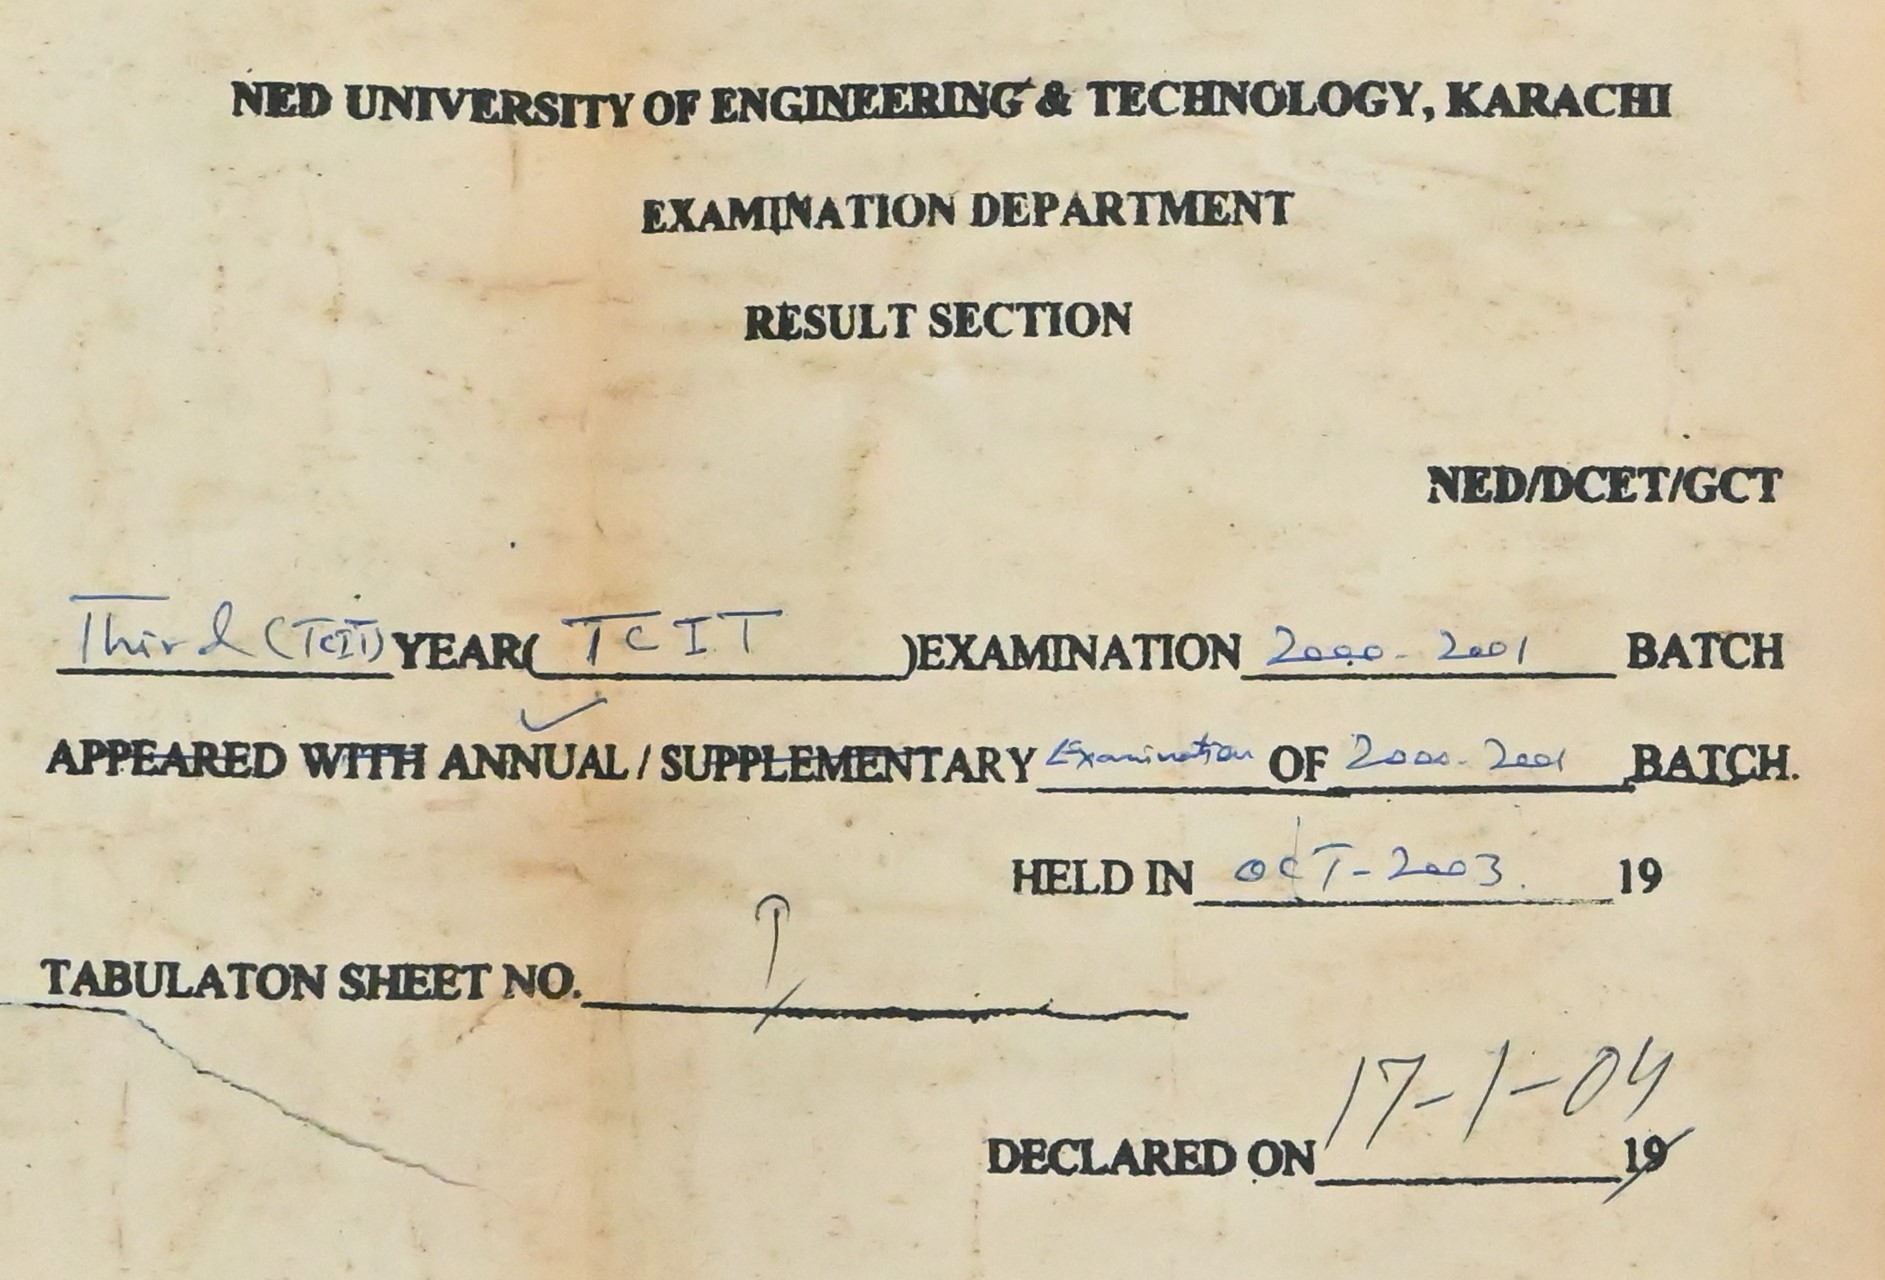 NED UNIVERSITY OF ENGINEERING & TECHNOLOGY, KARACHI
EXAMINATION DEPARTMENT
RESULT SECTION
NED/DCET/GCT
Third (TCIT) YEAR( TCIT )EXAMINATION 2000-2001 BATCH
APPEARED WITH ANNUAL / SUPPLEMENTARY Examination OF 2000-2001 BATCH.
HELD IN OCT-2003. 19
TABULATON SHEET NO.
17-1-04
DECLARED ON 19